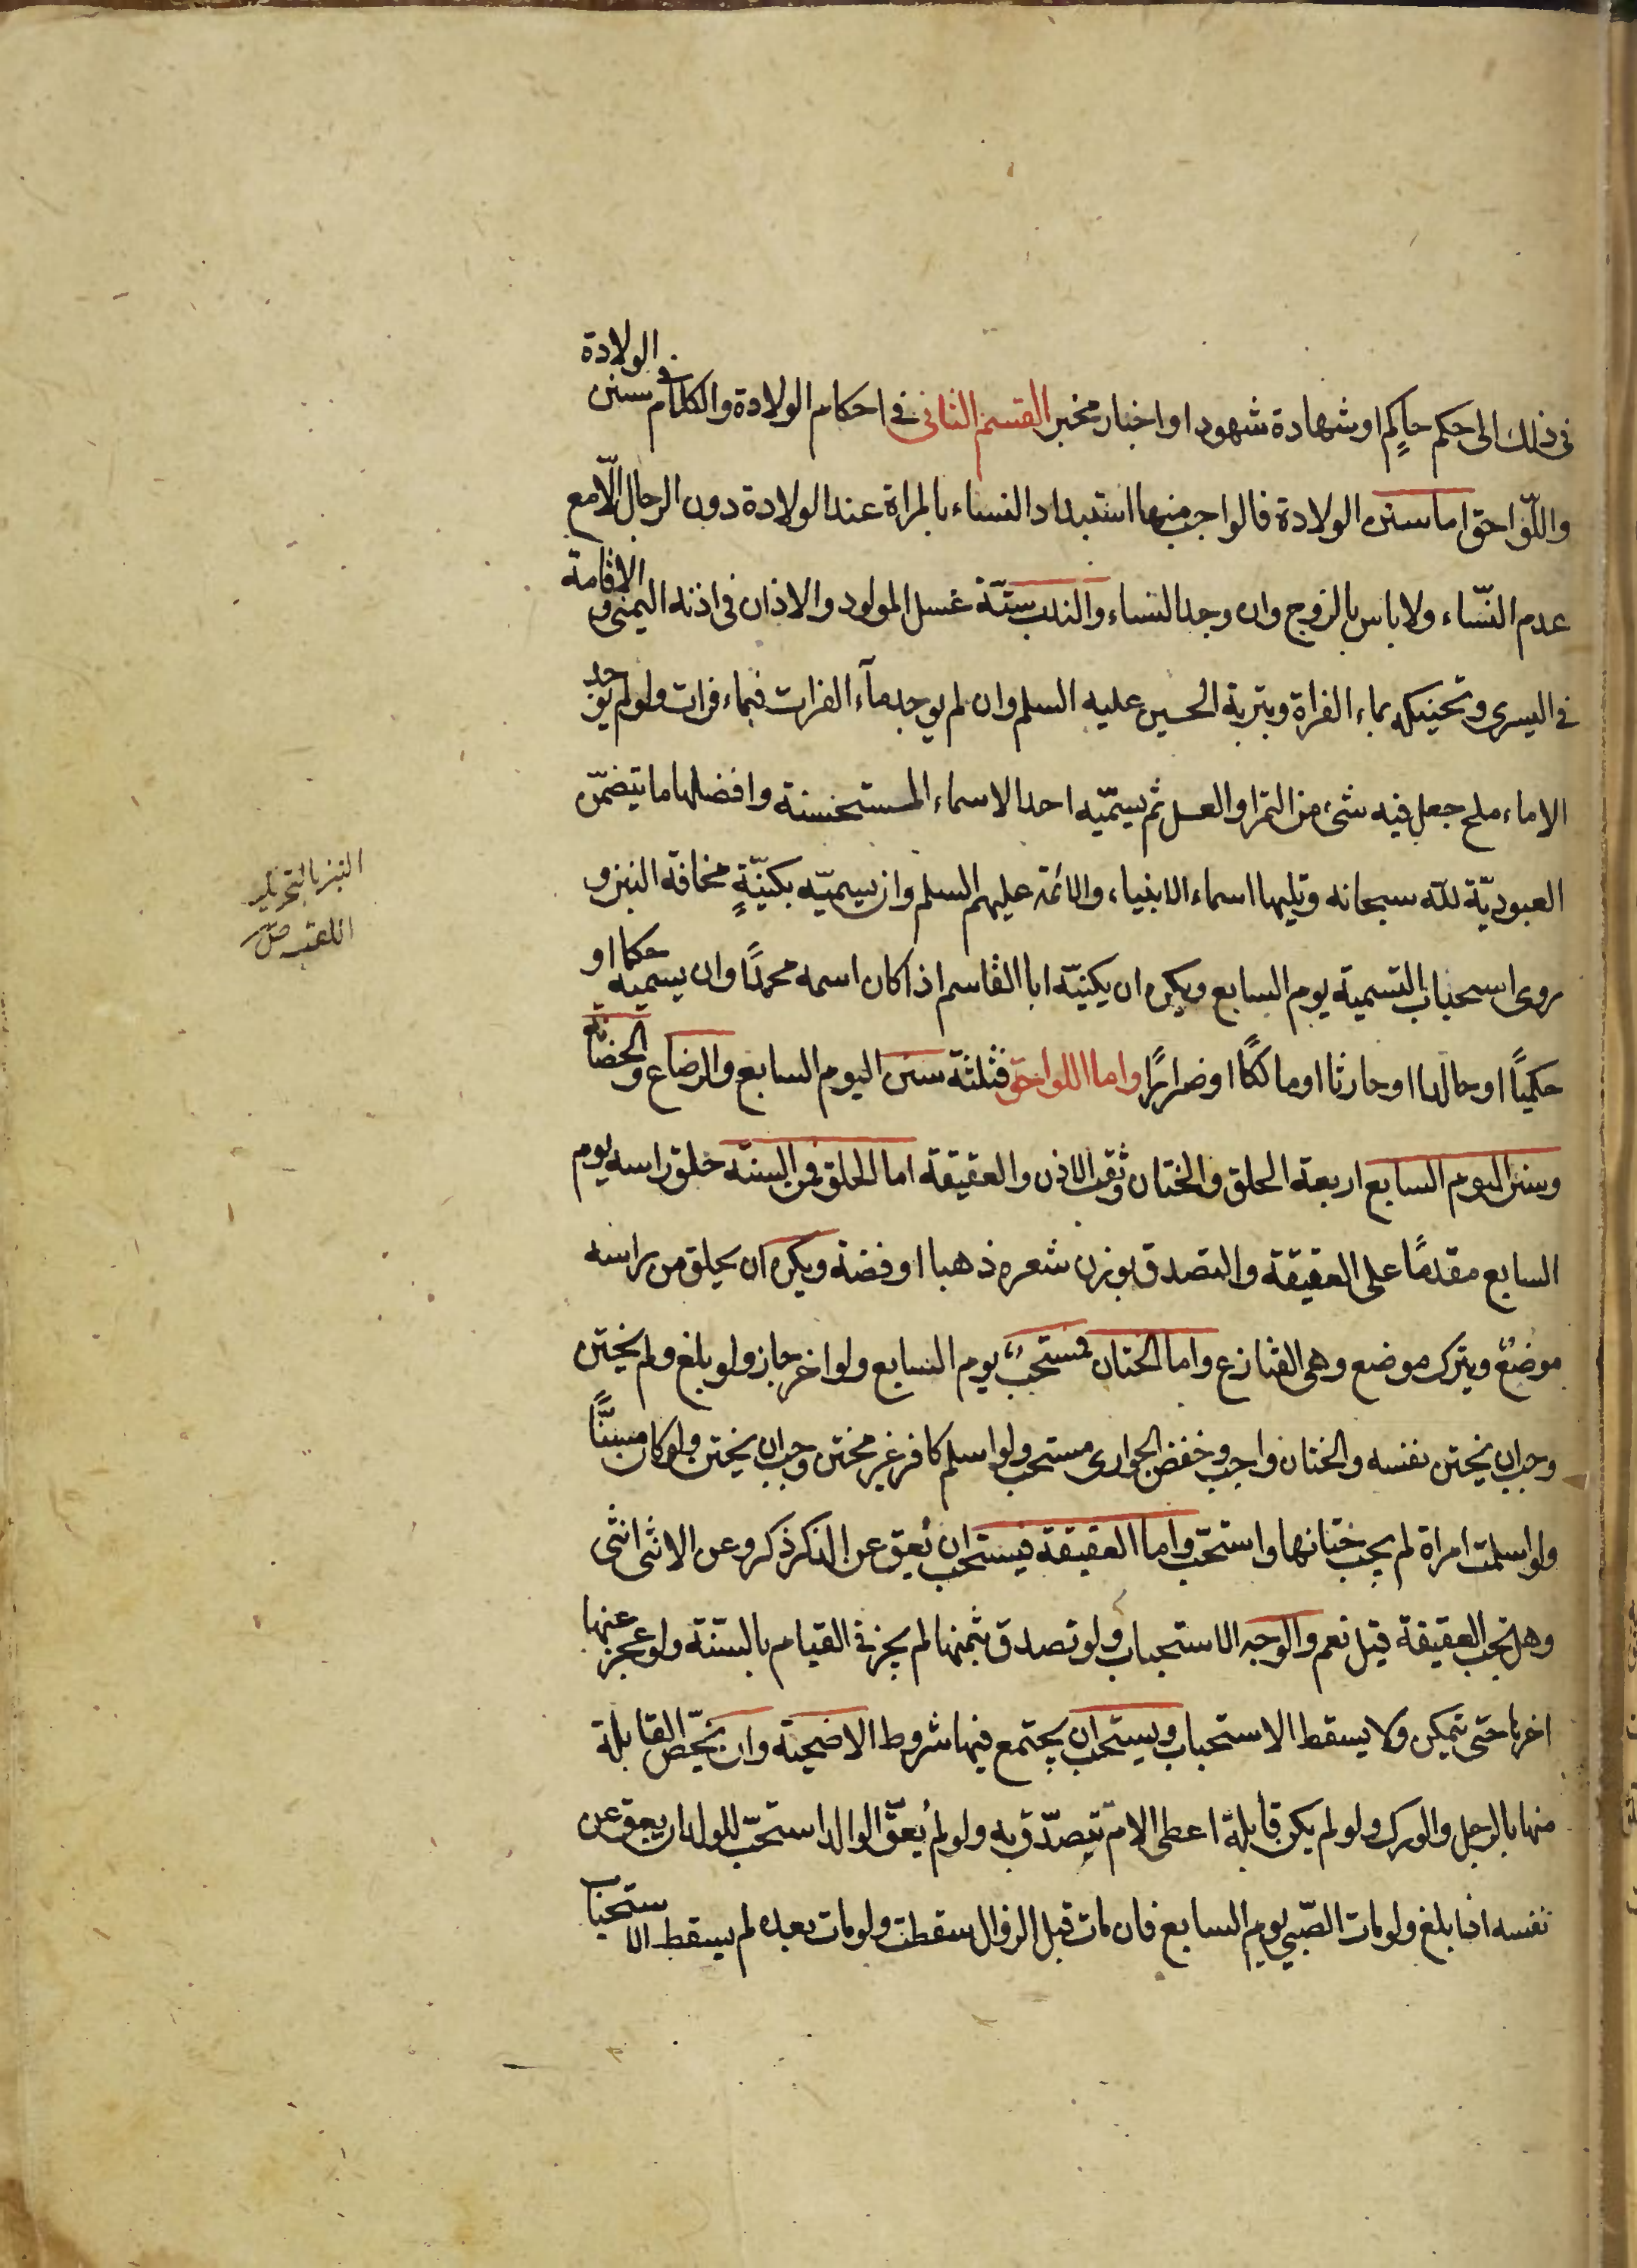 فى ذلك الى حكم حاكم او شهادة شهود او اخبار مخبر القسم الثانى فى احكام الولادة والكلام فى سنن الولادة
واللّواحق اما سنن الولادة فالواجب منها استبداد النساء بالمراة عند الولادة دون الرجال الّا مع
عدم النّساء ولا باس بالزوج وان وجد النساء والندب ستّة غسل المولود والاذان فى اذنه اليمنى والاقامة
فى اليسرى وتحنيكه بماء الفراة وبتربة الحسين عليه السلم وان لم يوجد مآء الفرات فبماء فرات ولو لم يوجد
الا ماء ملح جعل فيه شئ من التمر او العسل ثم يسمّيه احد الاسماء المستحسنة وافضلها ما يتضمّن
العبوديّة للّه سبحانه وتليها اسماء الانبياء والائمة عليهم السلم وان يسميّه بكنيّةٍ مخافة النبز و
روى استحباب التسمية يوم السابع ويكره ان يكنيّه ابا القاسم اذا كان اسمه محمدًا وان يسميه حكما او
حكيمًا او خالدا او حارثا او مالكًا او ضرارًا واما اللواحق فثلثة سنن اليوم السابع والرضاع والحضانة
وسنن اليوم السابع اربعة الحلق والختان وثقب الاذن والعقيقة اما الحلق فمن السنّة حلق راسه يوم
السابع مقدمًا على العقيقة والتصدق بوزن شعره ذهبا او فضة ويكره ان يحلق من راسه
موضعٌ ويترك موضع وهى القنازع واما الختان فمستحب يوم السابع ولو اخر جاز ولو بلغ ولم يختن
وجب ان يختن نفسه والختان واجب وخفض الجوارى مستحب ولو اسلم كافر غير مختن وجب ان يختن ولو كان مسنًّا
ولو اسلمت امراة لم يجب ختانها واستحبّ واما العقيقة فيستحب ان يُعق عن الذكر ذكر وعن الانثى انثى
وهل تجب العقيقة قيل نعم والوجه الاستحباب ولو تصدق بثمنها لم يجز فى القيام بالسّنة ولو عجز عنها
اخرها حتى يتمكن ولا يسقط الاستحباب ويستحب ان يجتمع فيها شروط الاضحية وان يخصّ القابلة
منها بالرجل والورك ولو لم يكن قابلة اعطى الام تتصدّق به ولو لم يُعقّ الوالد استحبّ للولد ان يعق عن
نفسه اذا بلغ ولو مات الصّبى يوم السابع فان مات قبل الزوال سقطت ولو مات بعده لم يسقط الاستحباب
النبز بالتحريك
اللقب ص